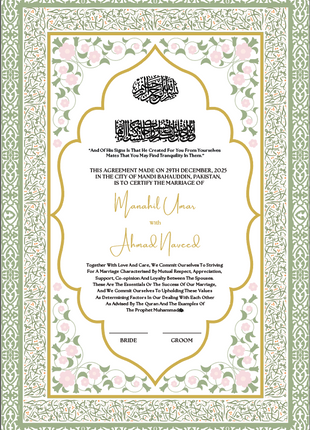 "And Of His Signs Is That He Created For You From Yourselves
Mates That You May Find Tranquility In Them."
THIS AGREEMENT MADE ON 29TH DECEMBER, 2025
IN THE CITY OF MANDI BAHAUDDIN, PAKISTAN,
IS TO CERTIFY THE MARRIAGE OF
Manahil Umar
with
Ahmad Naveed
Together With Love And Care, We Commit Ourselves To Striving
For A Marriage Characterised By Mutual Respect, Appreciation,
Support, Co-opnion And Loyalty Between The Spouses.
These Are The Essentials Or The Success Of Our Marriage,
And We Commit Ourselves To Upholding These Values
As Determining Factors In Our Dealing With Each Other
As Advised By The Quran And The Examples Of
The Prophet Muhammad
BRIDE GROOM